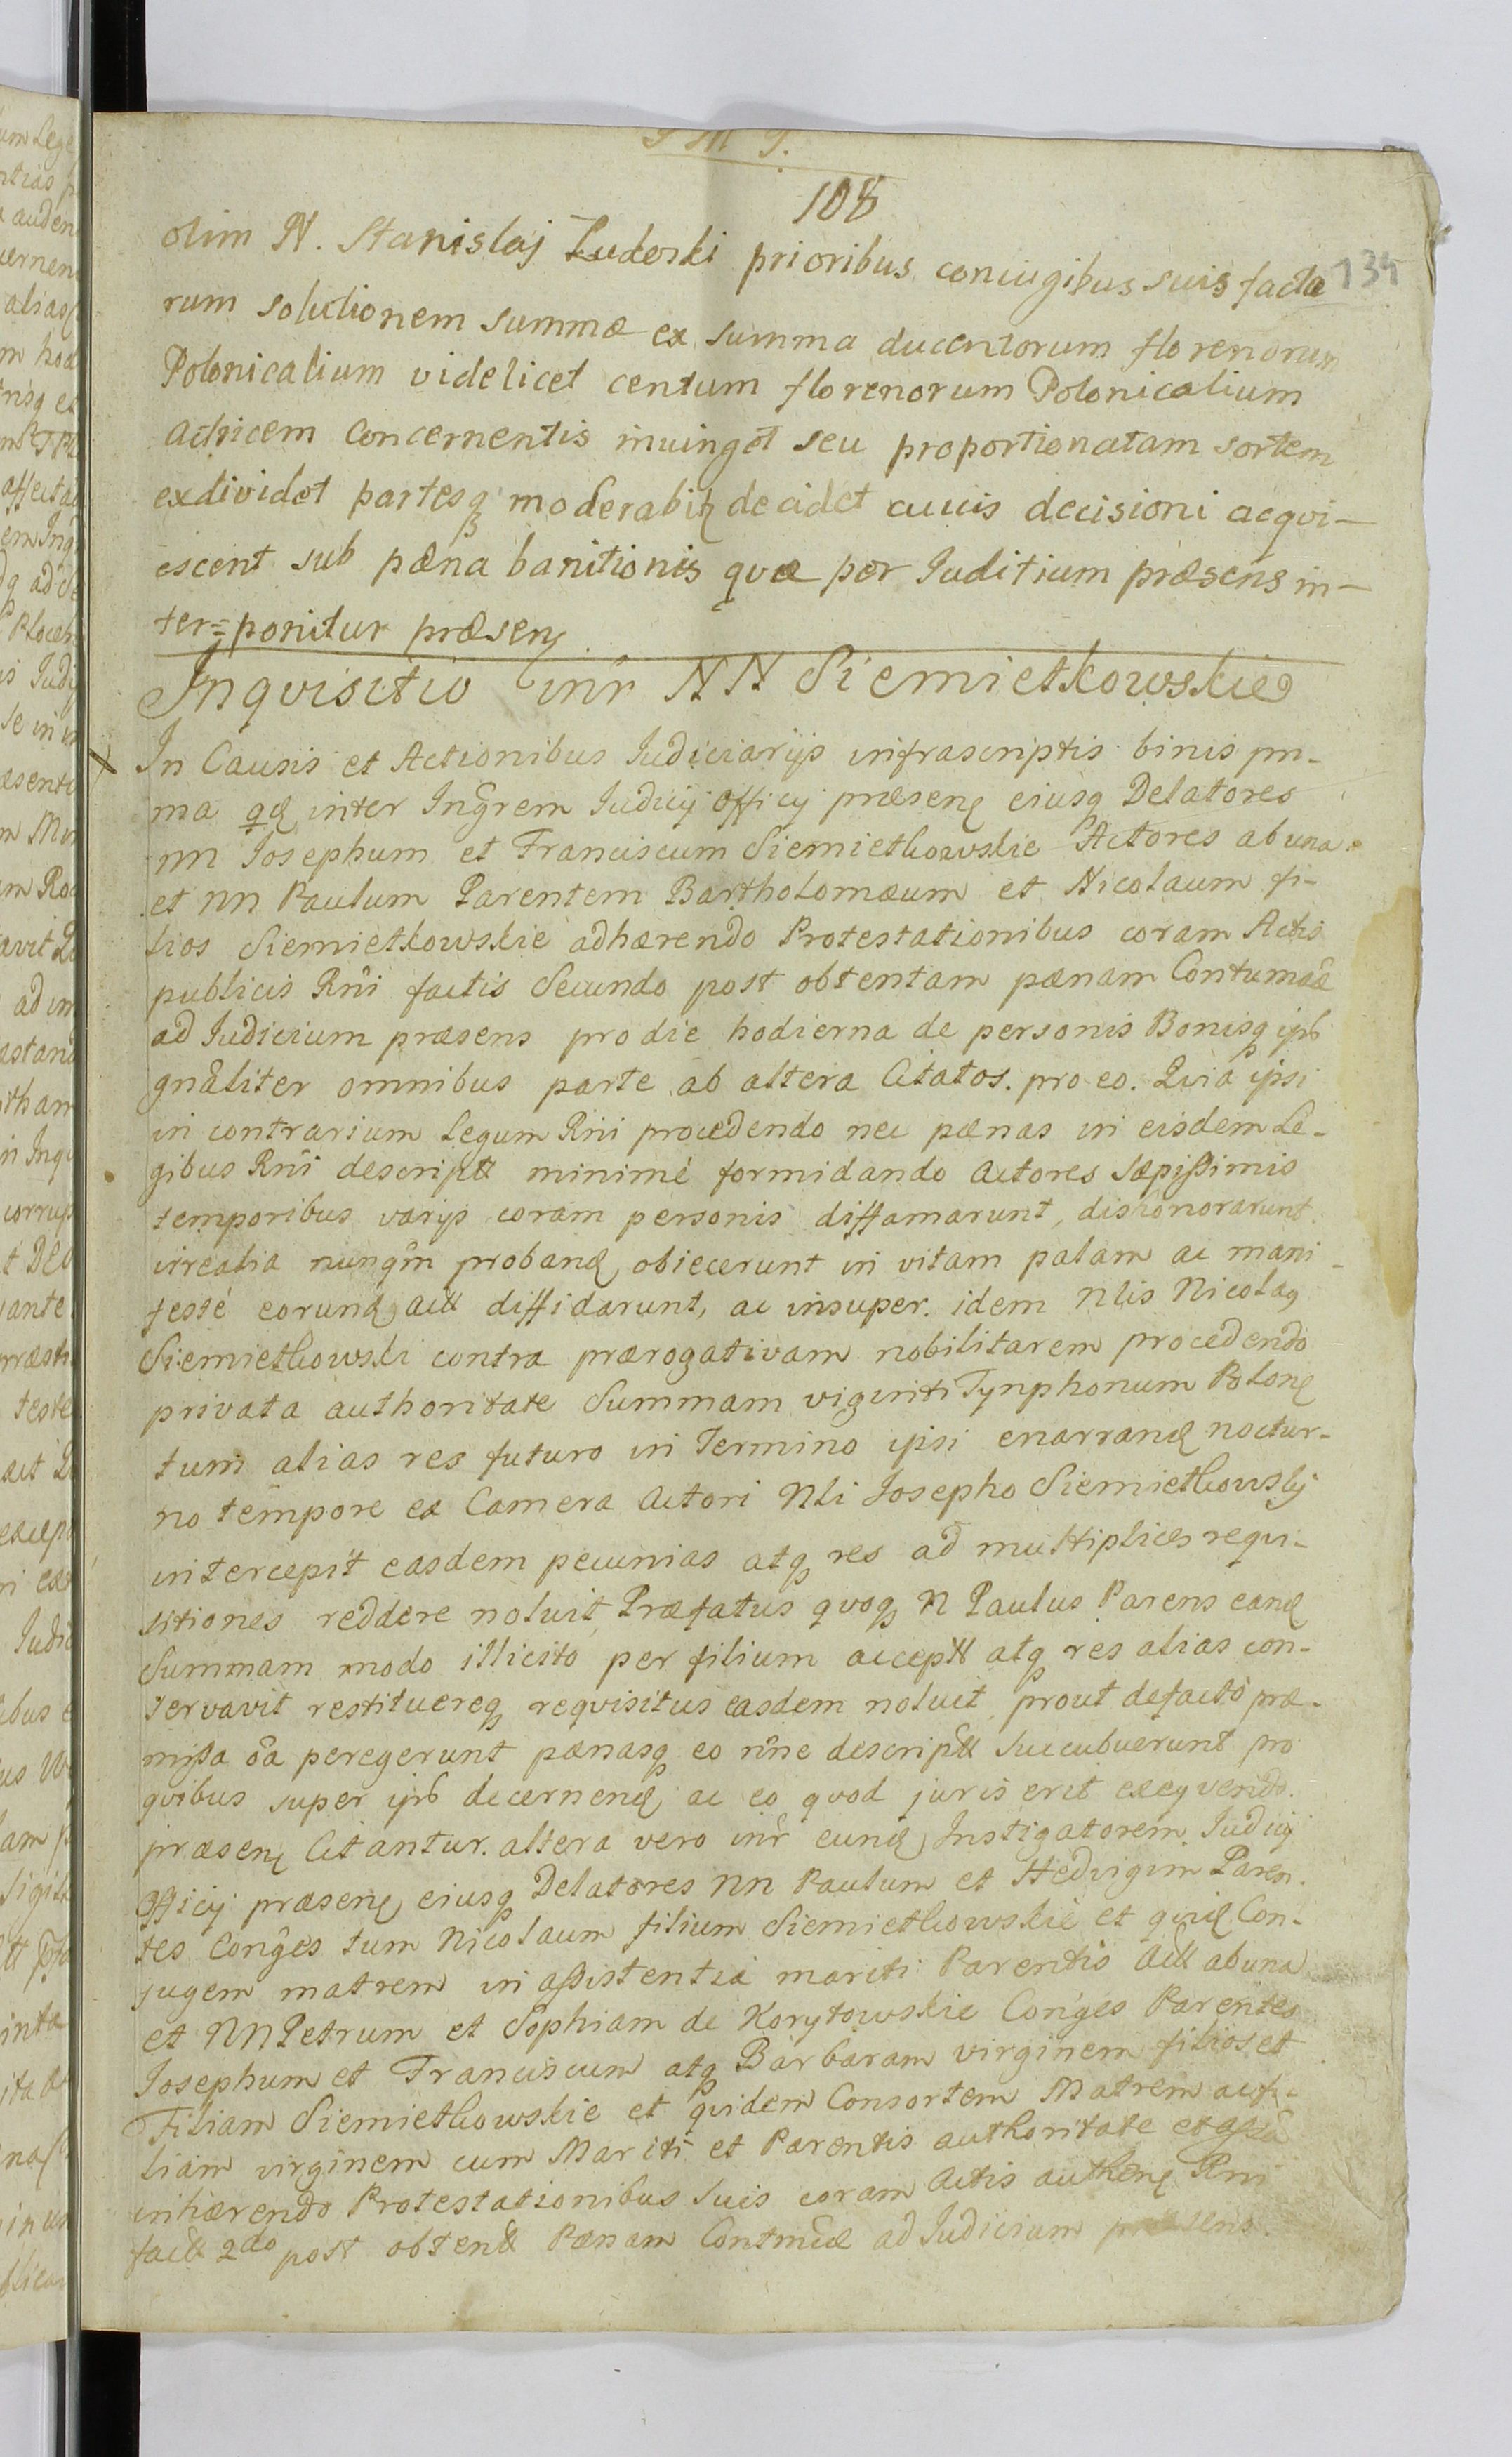 J M J.
108
134
olim N. Stanislaj Ludoski prioribus coniugibus suis facta
rum solutionem summæ ex summa ducentorum florenorum
Polonicalium videlicet centum florenorum Polonicalium
Actricem Concernentis inuinget seu proportionatam sortem
exdividet partesq moderabit decidet cuius decisioni acqvi-
escent sub pæna banitionis qvæ per Iuditium præsens in-
ter=ponitur præsen
Inqvisitio inr NN Siemietkowskie
In Causis et Actionibus Iudiciarijs infrascriptis binis pri-
ma qd inter Ingrem Iudicij officij præsen eiusq Delatores
nn Iosephum et Franciscum Siemietkowskie Actores ab una
et nn Paulum Parentem Bartholomæum et Nicolaum fi-
lios Siemietkowskie adhærendo Protestationibus coram Actis
publicis Rni factis Secundo post obtentam pænam Contumaæ
ad Iudicium præsens pro die hodierna de personis Bonisq ipb
gnâliter omnibus parte ab altera Citatos. pro eo. Qvia ipsi
in contrarium Legum Rni procedendo nec pænas in eisdem Le-
gibus Rni descriptt minimé formidando Actores sæpissimis
temporibus varijs coram personis diffamarunt, dishonorarunt
irrealia nunqm proband obiecerunt in vitam palam ac mani-
festé eorund actt diffidarunt, ac insuper. idem Nlis Nicolaq
Siemietkowski contra prærogativam nobilitarem procedendo
privata authoritate Summam viginti Tynphonum Polon
tum alias res futuro in Termino ipsi enarrand noctur-
no tempore ex Camera Actori Nli Iosepho Siemietkowskj
intercepit easdem pecunias atq res ad multiplices reqvi-
sitiones reddere noluit Præfatus qvoq N Paulus Parens eand
Summam modo illicito per filium acceptt atq res alias con-
servavit restituereq reqvisitus easdem noluit prout defacto præ-
missa oa peregerunt pænasq eo nine descriptt succubuerunt pro
qvibus super ipb decernend ac eo qvod juris erit exeqvendo.
præsen Citantur. altera vero inr eund Instigatorem Iudicij
Officij præsen eiusq Delatores nn Paulum et Hedvigim Paren-
tes Conges tum Nicolaum filium Siemietkowskie et qvid Con-
jugem matrem in assistentia mariti Parentis actt ab una
et NN Petrum et Sophiam de Korytowskie Conges Parentes
Iosephum et Franciscum atq Barbaram virginem filios et
Filiam Siemietkowskie et qvidem Consortem Matrem ac fi-
liam virginem cum Mariti et Parentis authoritate et
inhærendo Protestationibus suis coram Actis authen Rni
factt 2do post obtentt Pænam Contmciæ ad Iudicium præsens.